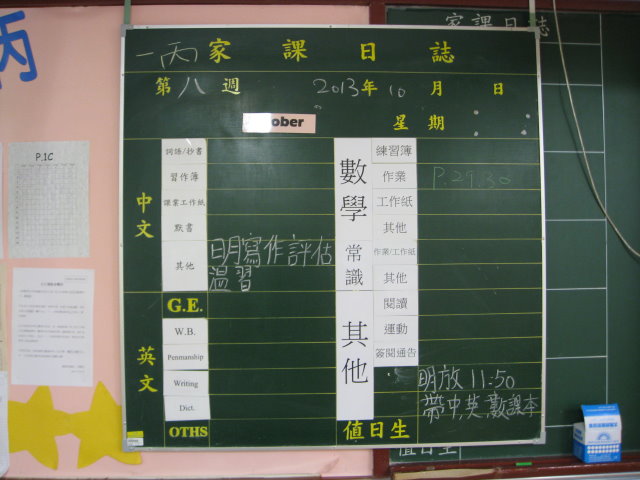 丙
家課日誌
P.1C
一丙 家課日誌
第八週 2013年10月 日
ober 星期:
中文
詞語/抄書
習作簿
課堂工作紙
默書
其他
明寫作評估
溫習
數學
練習簿
作業 P.29.30
工作紙
其他
常識
作業/工作紙
其他
英文
G.E.
W.B.
Penmanship
Writing
Dict.
OTHS
其他
閱讀
運動
簽閱通告
明放 11:50
帶中英數課本
值日生
值日生